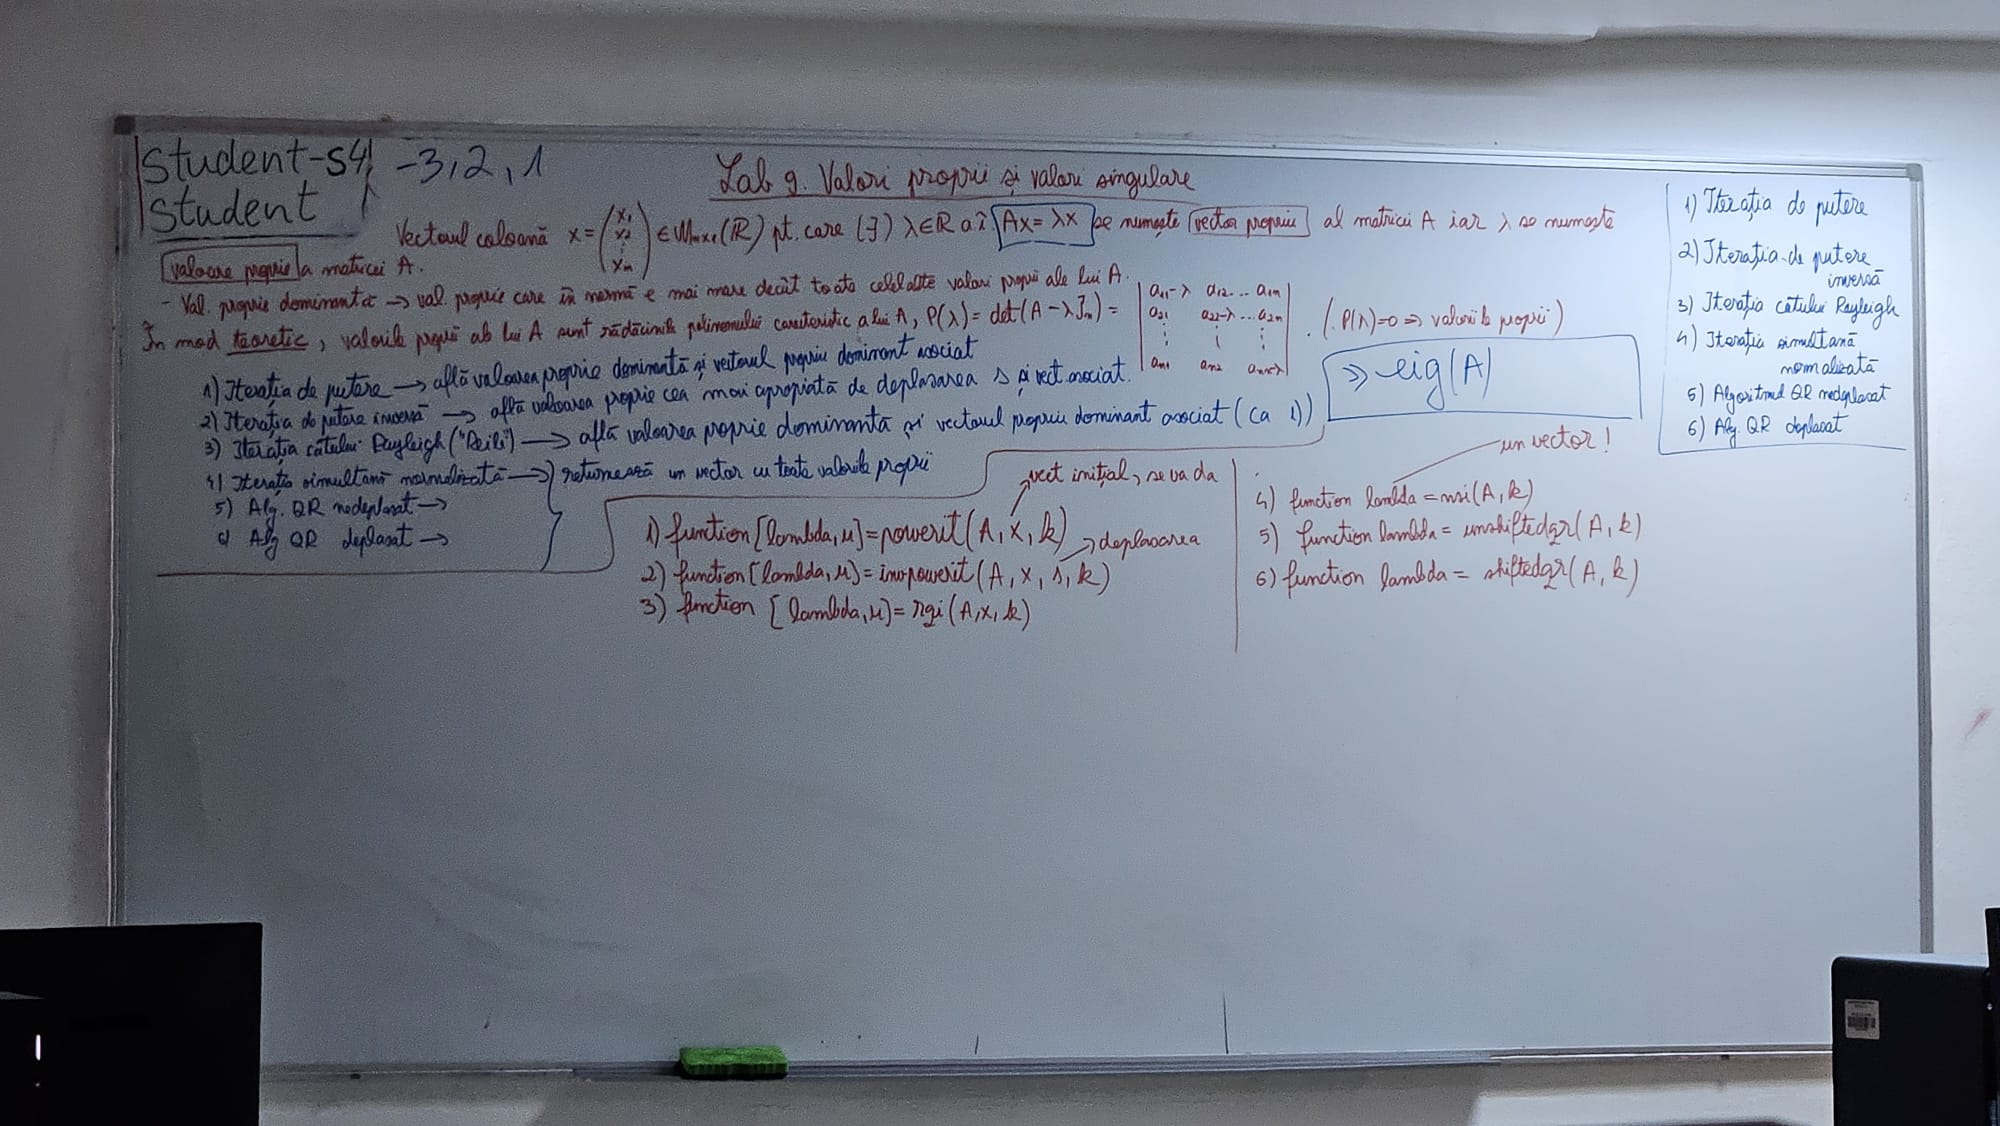 Student-s4, -3,2,1
student
Lab 9. Valori proprii și valori singulare
Vectorul coloană x = (x₁ x₂ ⋮ xₙ) ∈ Mₙₓ₁(ℝ) pt. care (∃) λ∈ℝ a.î. Ax = λx se numește vector propriu al matricei A iar λ se numește
valoare proprie a matricei A.
- Val. proprie dominantă → val. proprie care în normă e mai mare decât toate celelalte valori proprii ale lui A.
În mod teoretic, valorile proprii ale lui A sunt rădăcinile polinomului caracteristic a lui A, P(λ) = det(A - λIₙ) = | a₁₁-λ a₁₂ ... a₁ₙ
a₂₁ a₂₂-λ ... a₂ₙ
⋮ ⋮ ⋮
aₙ₁ aₙ₂ aₙₙ-λ | . (P(λ)=0 ⇒ valorile proprii)
1) Iterația de putere → află valoarea proprie dominantă și vectorul propriu dominant asociat
2) Iterația de putere inversă → află valoarea proprie cea mai apropiată de deplasarea s și vect. asociat.
3) Iterația câtului Rayleigh ("Reili") → află valoarea proprie dominantă și vectorul propriu dominant asociat (ca 1))
4) Iterația simultană normalizată → returnează un vector cu toate valorile proprii
5) Alg. QR nedeplasat →
6) Alg QR deplasat →
>> eig(A)
vect inițial, se va da
1) function [lambda,u]=powerit(A,x,k)
deplasarea
2) function [lambda,u]=invpowerit(A,x,s,k)
3) function [lambda,u]=rqi(A,x,k)
un vector!
4) function lambda = nsi(A,k)
5) function lambda = unshiftedqr(A,k)
6) function lambda = shiftedqr(A,k)
1) Iterația de putere
2) Iterația de putere
inversă
3) Iterația câtului Rayleigh
4) Iterația simultană
normalizată
5) Algoritmul QR nedeplasat
6) Alg. QR deplasat